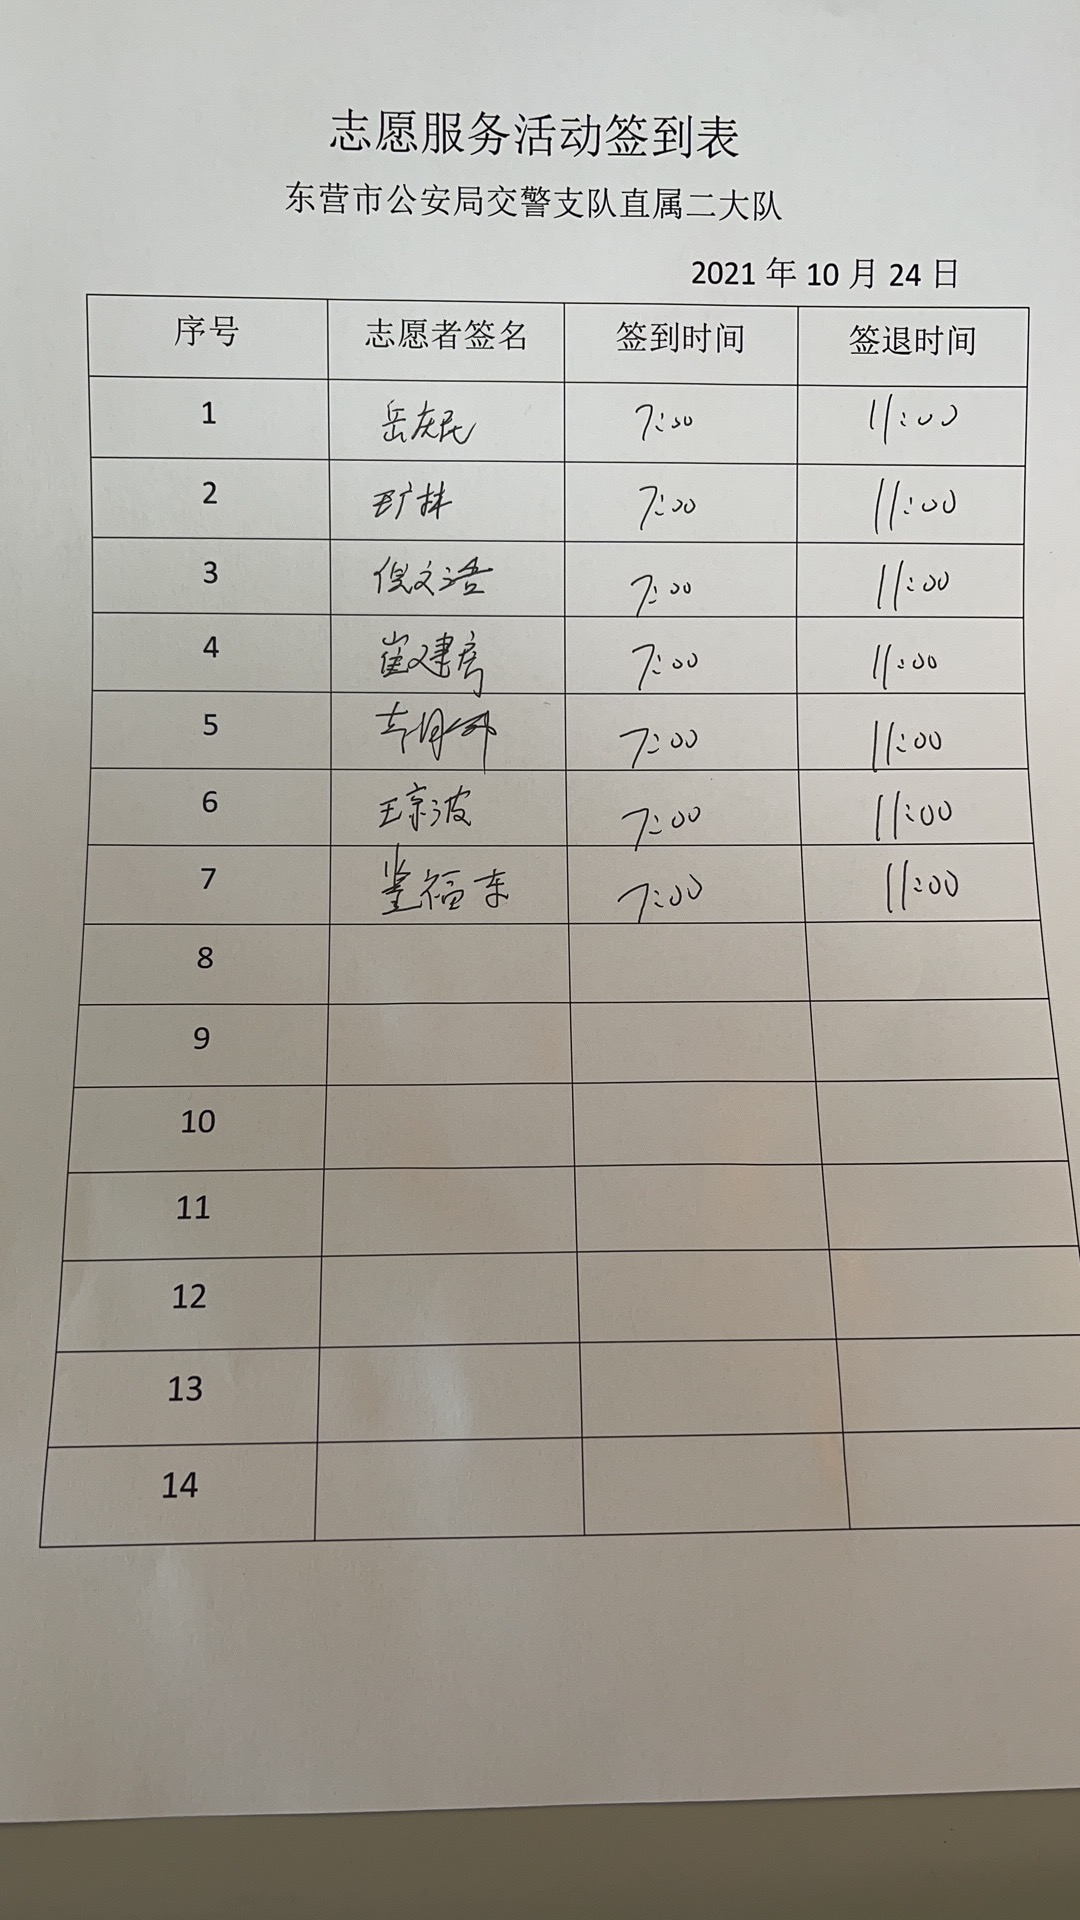 志愿服务活动签到表
东营市公安局交警支队直属二大队
2021 年 10 月 24 日
序号 志愿者签名 签到时间 签退时间
1 岳庆民 7:00 11:00
2 7:00 11:00
3 倪文浩 7:00 11:00
4 崔建房 7:00 11:00
5 7:00 11:00
6 王京波 7:00 11:00
7 福东 7:00 11:00
8
9
10
11
12
13
14